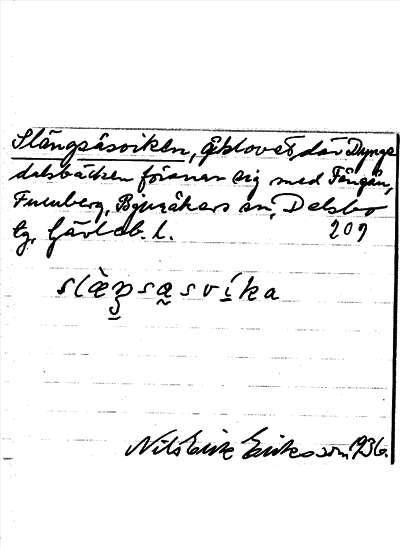 Slängsåsviken, åklovet, där Dyngs
dalsbäcken förenar sig med Fångån,
Furuberg, Bjuråkers sn, Delsbo
tg, Gävleb. l. 209
slæ̀ŋsæsvíka
Nils Erik Eriksson 1936.